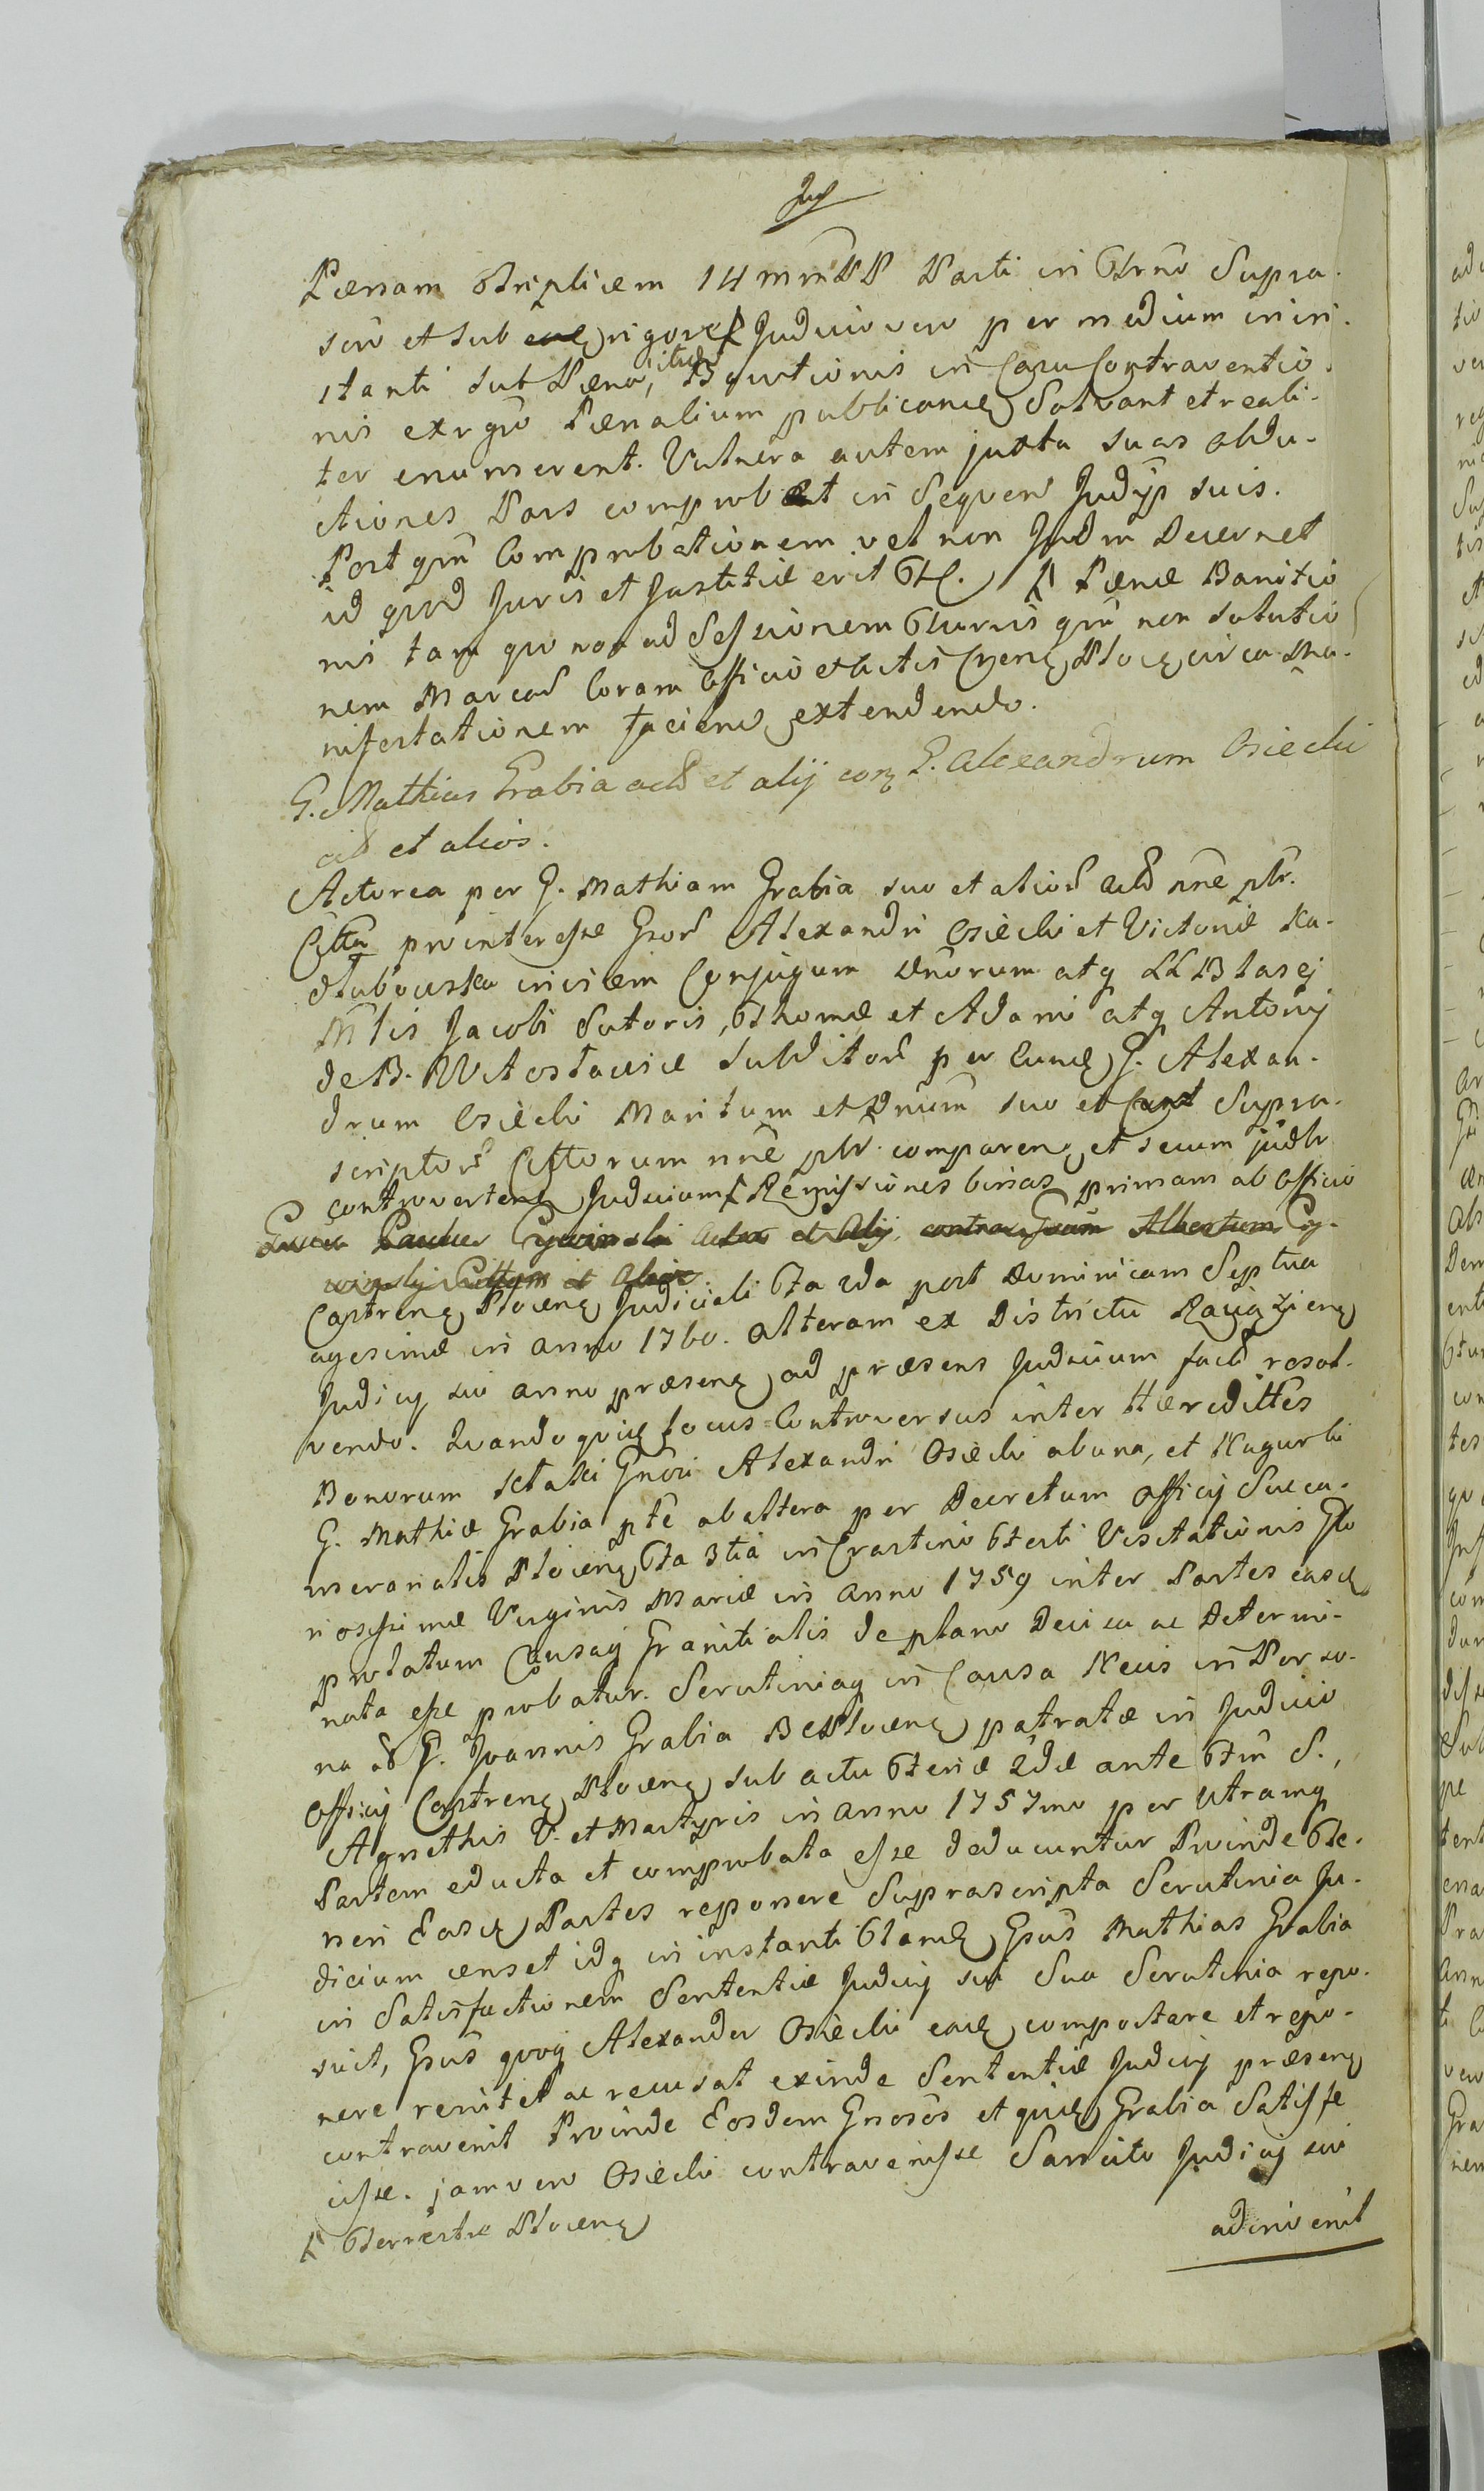 Paenam Triplicem 14 mrm PP Parti in Trno Supra.
scrō et sub rigore Judicio vero per medium in in.
stanti sub Paena, itidē Banitionis in Casu Contraventio.
nis exrgro Paenalium publicanđ Solvant et reali-
ter enumerent. Vulnera autem juxta suas obdu-
ctiones Pars comprobet in Sequen Judijs suis.
Post qrm Comprobationem vel non Judm Decernet
id quod Juris et Justitiæ erit TH. Paenæ Banitio
nis tam quo non ad Sessionem Turris qm non solutio
nem Marcar Coram Officio et Actis Cren Ploc circa Ma.
nifestationem facienđ extendendo.
G. Mathias Grabia act et alij con G. Alexandrum Osiecki
cit et alios.
Actorea per G. Mathiam Grabia suo et alior act nne plr.
Citta pro interesse Gsor Alexandri Osiecki et Victoriæ Ka-
dłubowska invicem Conjugum Dnorum atq LL Blasej
Mlis Jacobi Sutoris, Thomæ et Adami atq Antonij
de B. Wtostowice Subditor per eund G. Alexan-
drum Osiecki Maritum et Dnum suo et Supra-
scriptor Cittorum nne plr comparen et secum judlr
controverten Judicium Remissiones binas primam ab Officio
Paulus Cywinski Actor et Alij contra Gsum Albertum Cy-
winski Cittum et Alios
Castren Plocen Judiciali Fa 2da post Dominicam Septua
agesimæ in Anno 1760. Alteram ex Districtu Raciążien
Judicij sui anno præsen ad præsens Judicium fact resol-
vendo. Quandoquid locus Controversus inter Hæreditłes
Bonorum Gnosi Alexandri Osiecki ab una, et Kagurki
G. Mathiæ Grabia pte ab altera per Decretum Officij Succa-
meralis Plocen Fa 3tia in Crastino Festi Visitationis Glo
riosissimæ Virginis Mariæ in Anno 1759 inter Partes easd
prolatum Causaq Granitialis de plano Decisa ac Determi-
nata esse probatur. Scrutiniaq in Causa Necis in Perso-
na ol G. Joannis Grabia B Plocen patratæ in Judicio
Officij Castren Plocen sub actu Feriæ 2dæ ante Fm S.,
Agnethis V. et Martyris in Anno 1757mo per Utramq
Partem educta et comprobata esse deducuntur Proinde Te-
neri Easd Partes reponere Suprascripta Scrutinia Ju-
dicium censet idq in instanti Gsus Mathias Grabia
in Satisfactionem Sententiæ Judicij sui Sua Scrutinia repo-
suit, Gsus quoq Alexander Osiecki ead comportare et repo-
nere renitet ac recusat exinde Sententiæ Judicij præsen
contravenit Proinde Eosdem Gnosos et quid Grabia Satisfe
cisse. jam vero Osiecki contravenisse Sancito Judicij sui
Terrestre Plocen
adinvenit